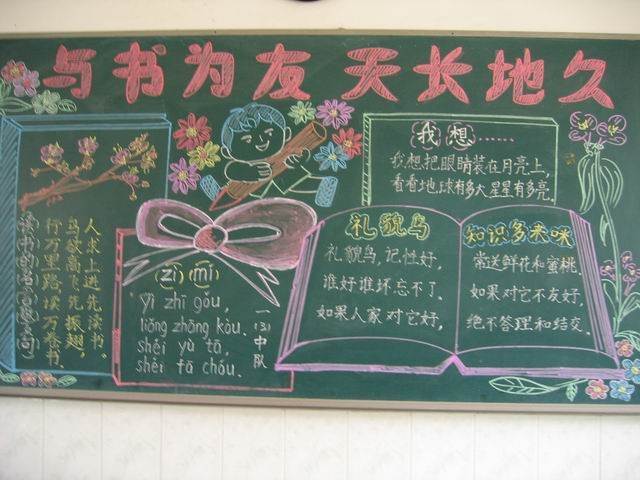 与书为友 天长地久
读书的名言(警句)
行万里路,读万卷书.
鸟欲高飞先振翅,
人求上进先读书.
(zì) (mí)
Yì zhī gǒu,
liǎng zhāng kǒu.
shéi yù tā,
shéi tā chóu.
一(3)中队
我想……
我想把眼睛装在月亮上,
看看地球有多大,星星有多亮.
礼貌鸟
礼貌鸟,记性好,
谁好谁坏忘不了.
如果人家对它好,
知识多来咪
常送鲜花和蜜桃.
如果对它不友好,
绝不答理和结交.